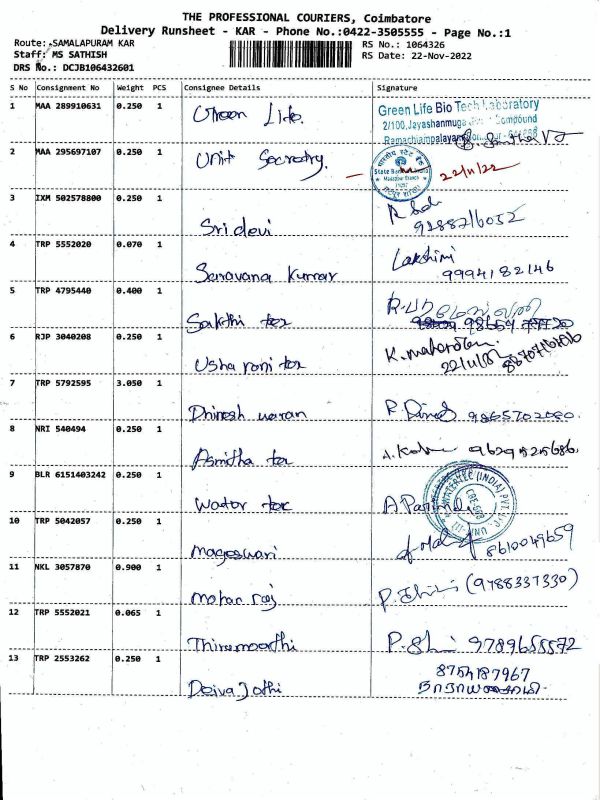 THE PROFESSIONAL COURIERS, Coimbatore
Delivery Runsheet - KAR - Phone No.:0422-3505555 - Page No.:1
Route: SAMALAPURAM KAR
RS No.: 1064326
Staff: MS SATHISH
RS Date: 22-Nov-2022
DRS No.: DCJB106432601
S No Consignment No Weight PCS Consignee Details Signature
1 MAA 289910631 0.250 1 Green Life
Green Life Bio Tech Laboratory
2/100, Jayashanmuga Compound
2 MAA 295697107 0.250 1 Unit Secretry.
State Bank of India
22/11/22
3 IXM 502578800 0.250 1 Sri devi
9288716052
4 TRP 5552020 0.070 1 Saravana Kumar Lakshmi
9994182146
5 TRP 4795440 0.400 1 Sakthi tex
6 RJP 3040208 0.250 1 Usha rani tex
7 TRP 5792595 3.050 1 Dhinesh waran
8 NRI 540494 0.250 1 Asmitha tex
9 BLR 6151403242 0.250 1 Water tec
WATERTEC (INDIA) PVT.
10 TRP 5042057 0.250 1 Mageswari 8610049659
11 NKL 3057870 0.900 1 Mohan raj (9788337330)
12 TRP 5552021 0.065 1 Thirumoorthi
13 TRP 2553262 0.250 1 Deiva Jothi
8754187967